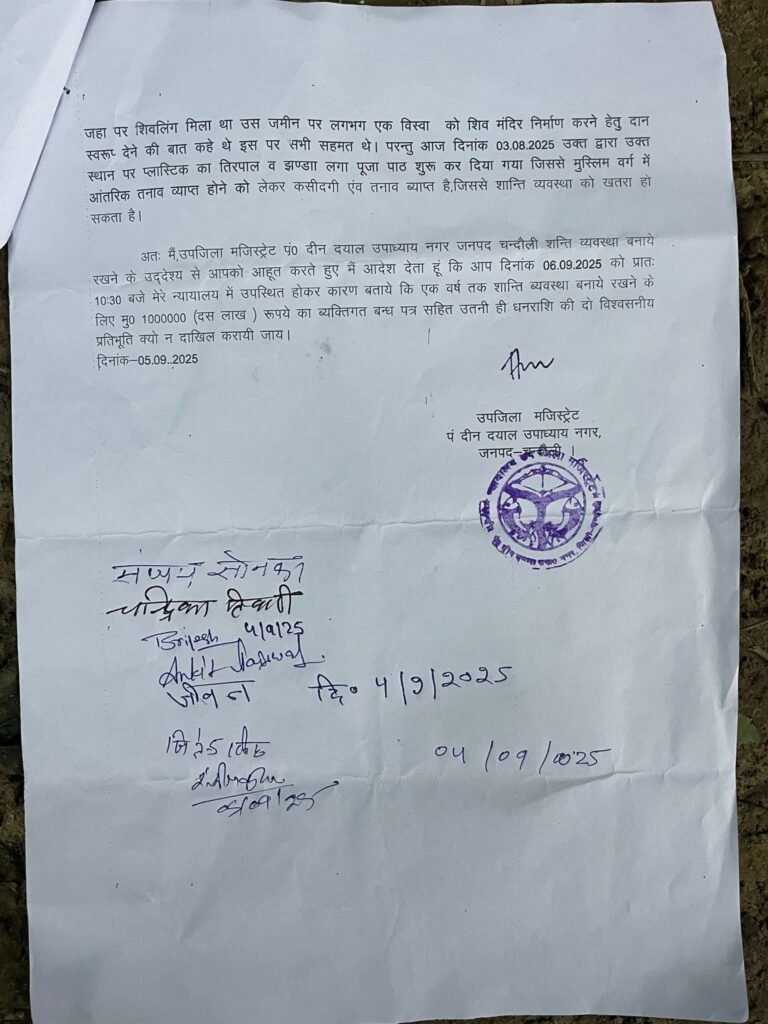 जहा पर शिवलिंग मिला था उस जमीन पर लगभग एक विस्वा को शिव मंदिर निर्माण करने हेतु दान
स्वरूप देने की बात कहे थे इस पर सभी सहमत थे। परन्तु आज दिनांक 03.08.2025 उक्त द्वारा उक्त
स्थान पर प्लास्टिक का तिरपाल व झण्डाा लगा पूजा पाठ शुरू कर दिया गया जिससे मुस्लिम वर्ग में
आंतरिक तनाव व्याप्त होने को लेकर कसीदगी एंव तनाव ब्याप्त है,जिससे शान्ति व्यवस्था को खतरा हो
सकता है।
अतः मैं,उपजिला मजिस्ट्रेट पं0 दीन दयाल उपाध्याय नगर जनपद चन्दौली शन्ति व्यवस्था बनाये
रखने के उद्देश्य से आपको आहूत करते हुए मैं आदेश देता हूं कि आप दिनांक 06.09.2025 को प्रातः
10:30 बजे मेरे न्यायालय में उपस्थित होकर कारण बताये कि एक वर्ष तक शान्ति व्यवस्था बनाये रखने के
लिए मु0 1000000 (दस लाख ) रूपये का ब्यक्तिगत बन्ध पत्र सहित उतनी ही धनराशि की दो विश्वसनीय
प्रतिभूति क्यो न दाखिल करायी जाय।
दिनांक–05.09..2025
उपजिला मजिस्ट्रेट
पं दीन दयाल उपाध्याय नगर,
जनपद–चन्दौली ।
संजय सोनकर
चन्द्रिका तिवारी
Brijesh 4/9/25
Ankit Jaiswal
जीवन दि० 4/9/2025
04/09/2025